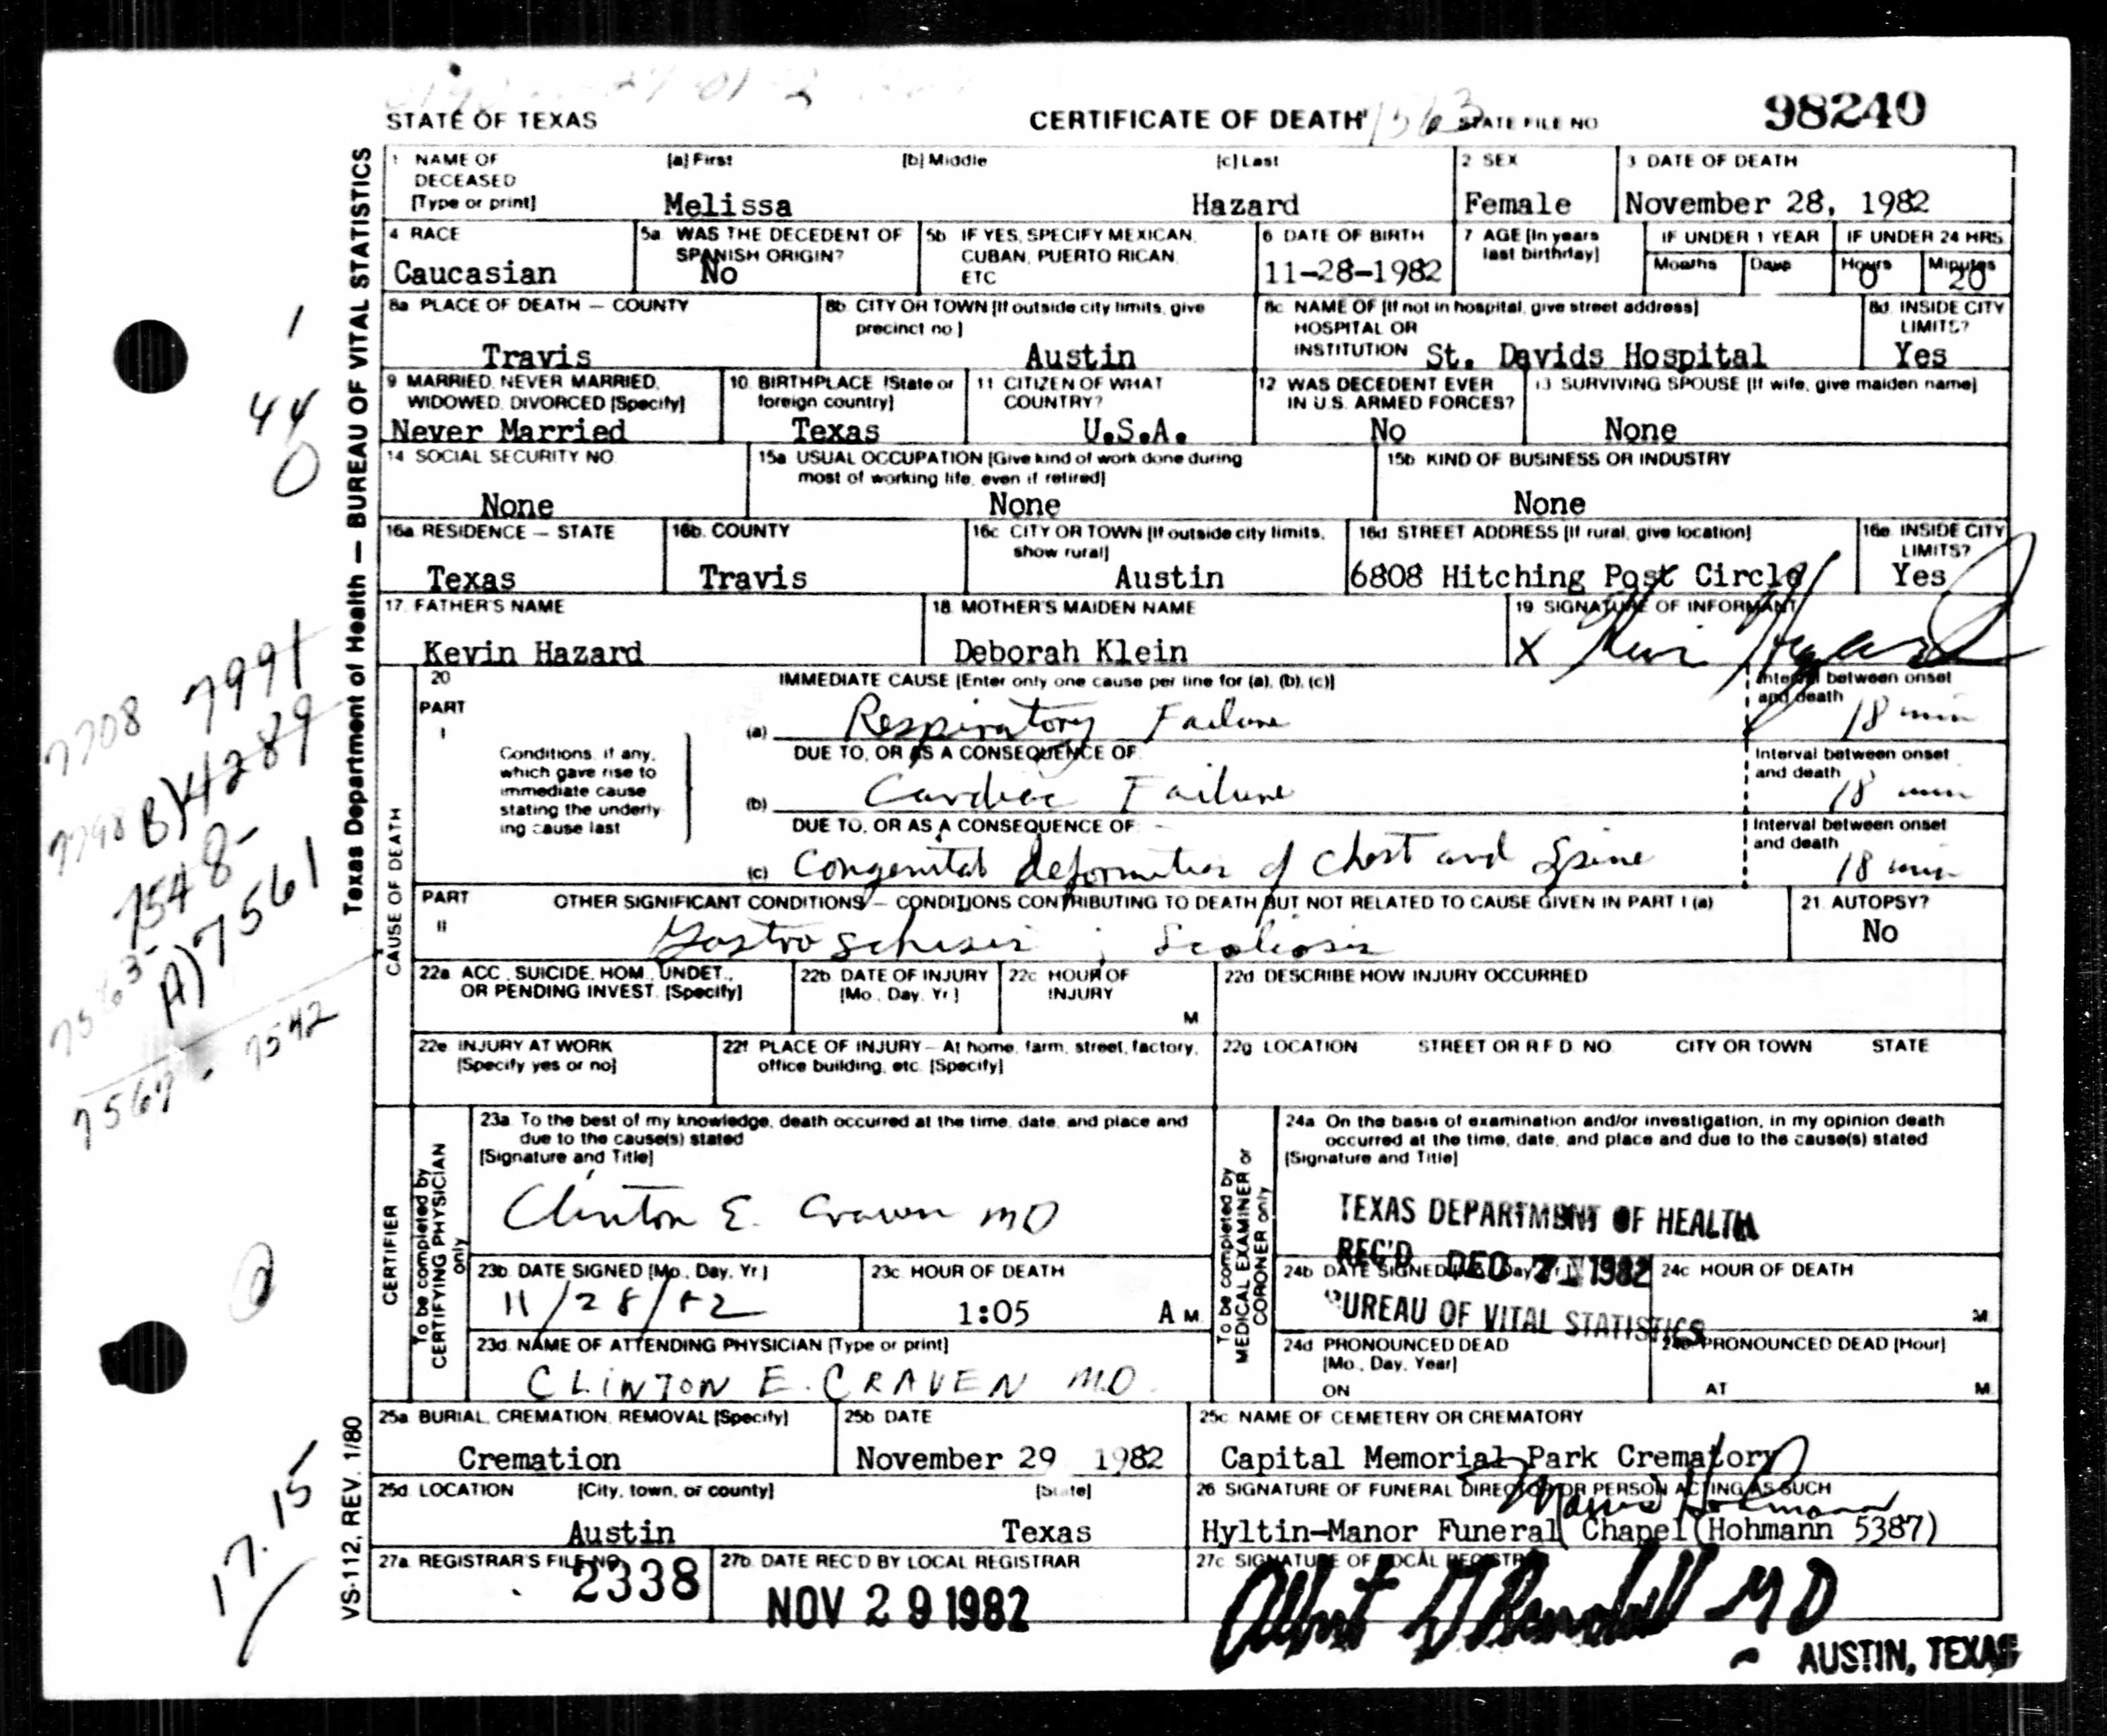 STATE OF TEXAS CERTIFICATE OF DEATH 1563 STATE FILE NO 98240
Texas Department of Health — BUREAU OF VITAL STATISTICS
1 NAME OF DECEASED [Type or print] [a] First [b] Middle [c] Last 2 SEX 3 DATE OF DEATH
Melissa Hazard Female November 28, 1982
4 RACE 5a WAS THE DECEDENT OF SPANISH ORIGIN? 5b IF YES, SPECIFY MEXICAN, CUBAN, PUERTO RICAN, ETC 6 DATE OF BIRTH 7 AGE [In years last birthday] IF UNDER 1 YEAR IF UNDER 24 HRS
Months Days Hours Minutes
Caucasian No 11-28-1982 0 20
8a PLACE OF DEATH — COUNTY 8b CITY OR TOWN [If outside city limits, give precinct no] 8c NAME OF [If not in hospital, give street address] HOSPITAL OR INSTITUTION 8d INSIDE CITY LIMITS?
Travis Austin St. Davids Hospital Yes
9 MARRIED, NEVER MARRIED, WIDOWED, DIVORCED [Specify] 10 BIRTHPLACE [State or foreign country] 11 CITIZEN OF WHAT COUNTRY? 12 WAS DECEDENT EVER IN U.S. ARMED FORCES? 13 SURVIVING SPOUSE [If wife, give maiden name]
Never Married Texas U.S.A. No None
14 SOCIAL SECURITY NO 15a USUAL OCCUPATION [Give kind of work done during most of working life, even if retired] 15b KIND OF BUSINESS OR INDUSTRY
None None None
16a RESIDENCE — STATE 16b COUNTY 16c CITY OR TOWN [If outside city limits, show rural] 16d STREET ADDRESS [If rural, give location] 16e INSIDE CITY LIMITS?
Texas Travis Austin 6808 Hitching Post Circle Yes
17 FATHER'S NAME 18 MOTHER'S MAIDEN NAME 19 SIGNATURE OF INFORMANT
Kevin Hazard Deborah Klein X Kevin Hazard
CAUSE OF DEATH
20 IMMEDIATE CAUSE [Enter only one cause per line for (a), (b), (c)] Interval between onset and death
PART I
(a) Respiratory Failure 18 min
Conditions, if any, which gave rise to immediate cause stating the underlying cause last
DUE TO, OR AS A CONSEQUENCE OF Interval between onset and death
(b) Cardiac Failure 18 min
DUE TO, OR AS A CONSEQUENCE OF Interval between onset and death
(c) Congenital deformities of chest and spine 18 min
PART II OTHER SIGNIFICANT CONDITIONS — CONDITIONS CONTRIBUTING TO DEATH BUT NOT RELATED TO CAUSE GIVEN IN PART I (a) 21. AUTOPSY?
Gastroschisis ; Scoliosis No
22a ACC, SUICIDE, HOM, UNDET., OR PENDING INVEST. [Specify] 22b DATE OF INJURY [Mo, Day, Yr] 22c HOUR OF INJURY M 22d DESCRIBE HOW INJURY OCCURRED
22e INJURY AT WORK [Specify yes or no] 22f PLACE OF INJURY — At home, farm, street, factory, office building, etc [Specify] 22g LOCATION STREET OR R F D NO. CITY OR TOWN STATE
CERTIFIER
To be completed by CERTIFYING PHYSICIAN only
23a To the best of my knowledge, death occurred at the time, date, and place and due to the cause(s) stated
[Signature and Title]
Clinton E. Craven MD
23b DATE SIGNED [Mo, Day, Yr] 23c HOUR OF DEATH
11/28/82 1:05 A M
23d NAME OF ATTENDING PHYSICIAN [Type or print]
CLINTON E. CRAVEN M.D.
To be completed by MEDICAL EXAMINER or CORONER only
24a On the basis of examination and/or investigation, in my opinion death occurred at the time, date, and place and due to the cause(s) stated
[Signature and Title]
TEXAS DEPARTMENT OF HEALTH
REC'D DEC 1982
BUREAU OF VITAL STATISTICS
24b DATE SIGNED 24c HOUR OF DEATH M
24d PRONOUNCED DEAD [Mo, Day, Year] ON PRONOUNCED DEAD [Hour] AT M.
25a BURIAL, CREMATION, REMOVAL [Specify] 25b DATE 25c NAME OF CEMETERY OR CREMATORY
Cremation November 29 1982 Capital Memorial Park Crematory
25d LOCATION [City, town, or county] [State] 26 SIGNATURE OF FUNERAL DIRECTOR OR PERSON ACTING AS SUCH
Austin Texas Hyltin-Manor Funeral Chapel (Hohmann 5387)
27a REGISTRAR'S FILE NO 27b DATE REC'D BY LOCAL REGISTRAR 27c SIGNATURE OF LOCAL REGISTRAR
2338 NOV 29 1982
AUSTIN, TEXAS
VS-112, REV. 1/80
1
44
0
7708 7991
7798 B)4289
7548-
A)7561
7542
7567
17.15